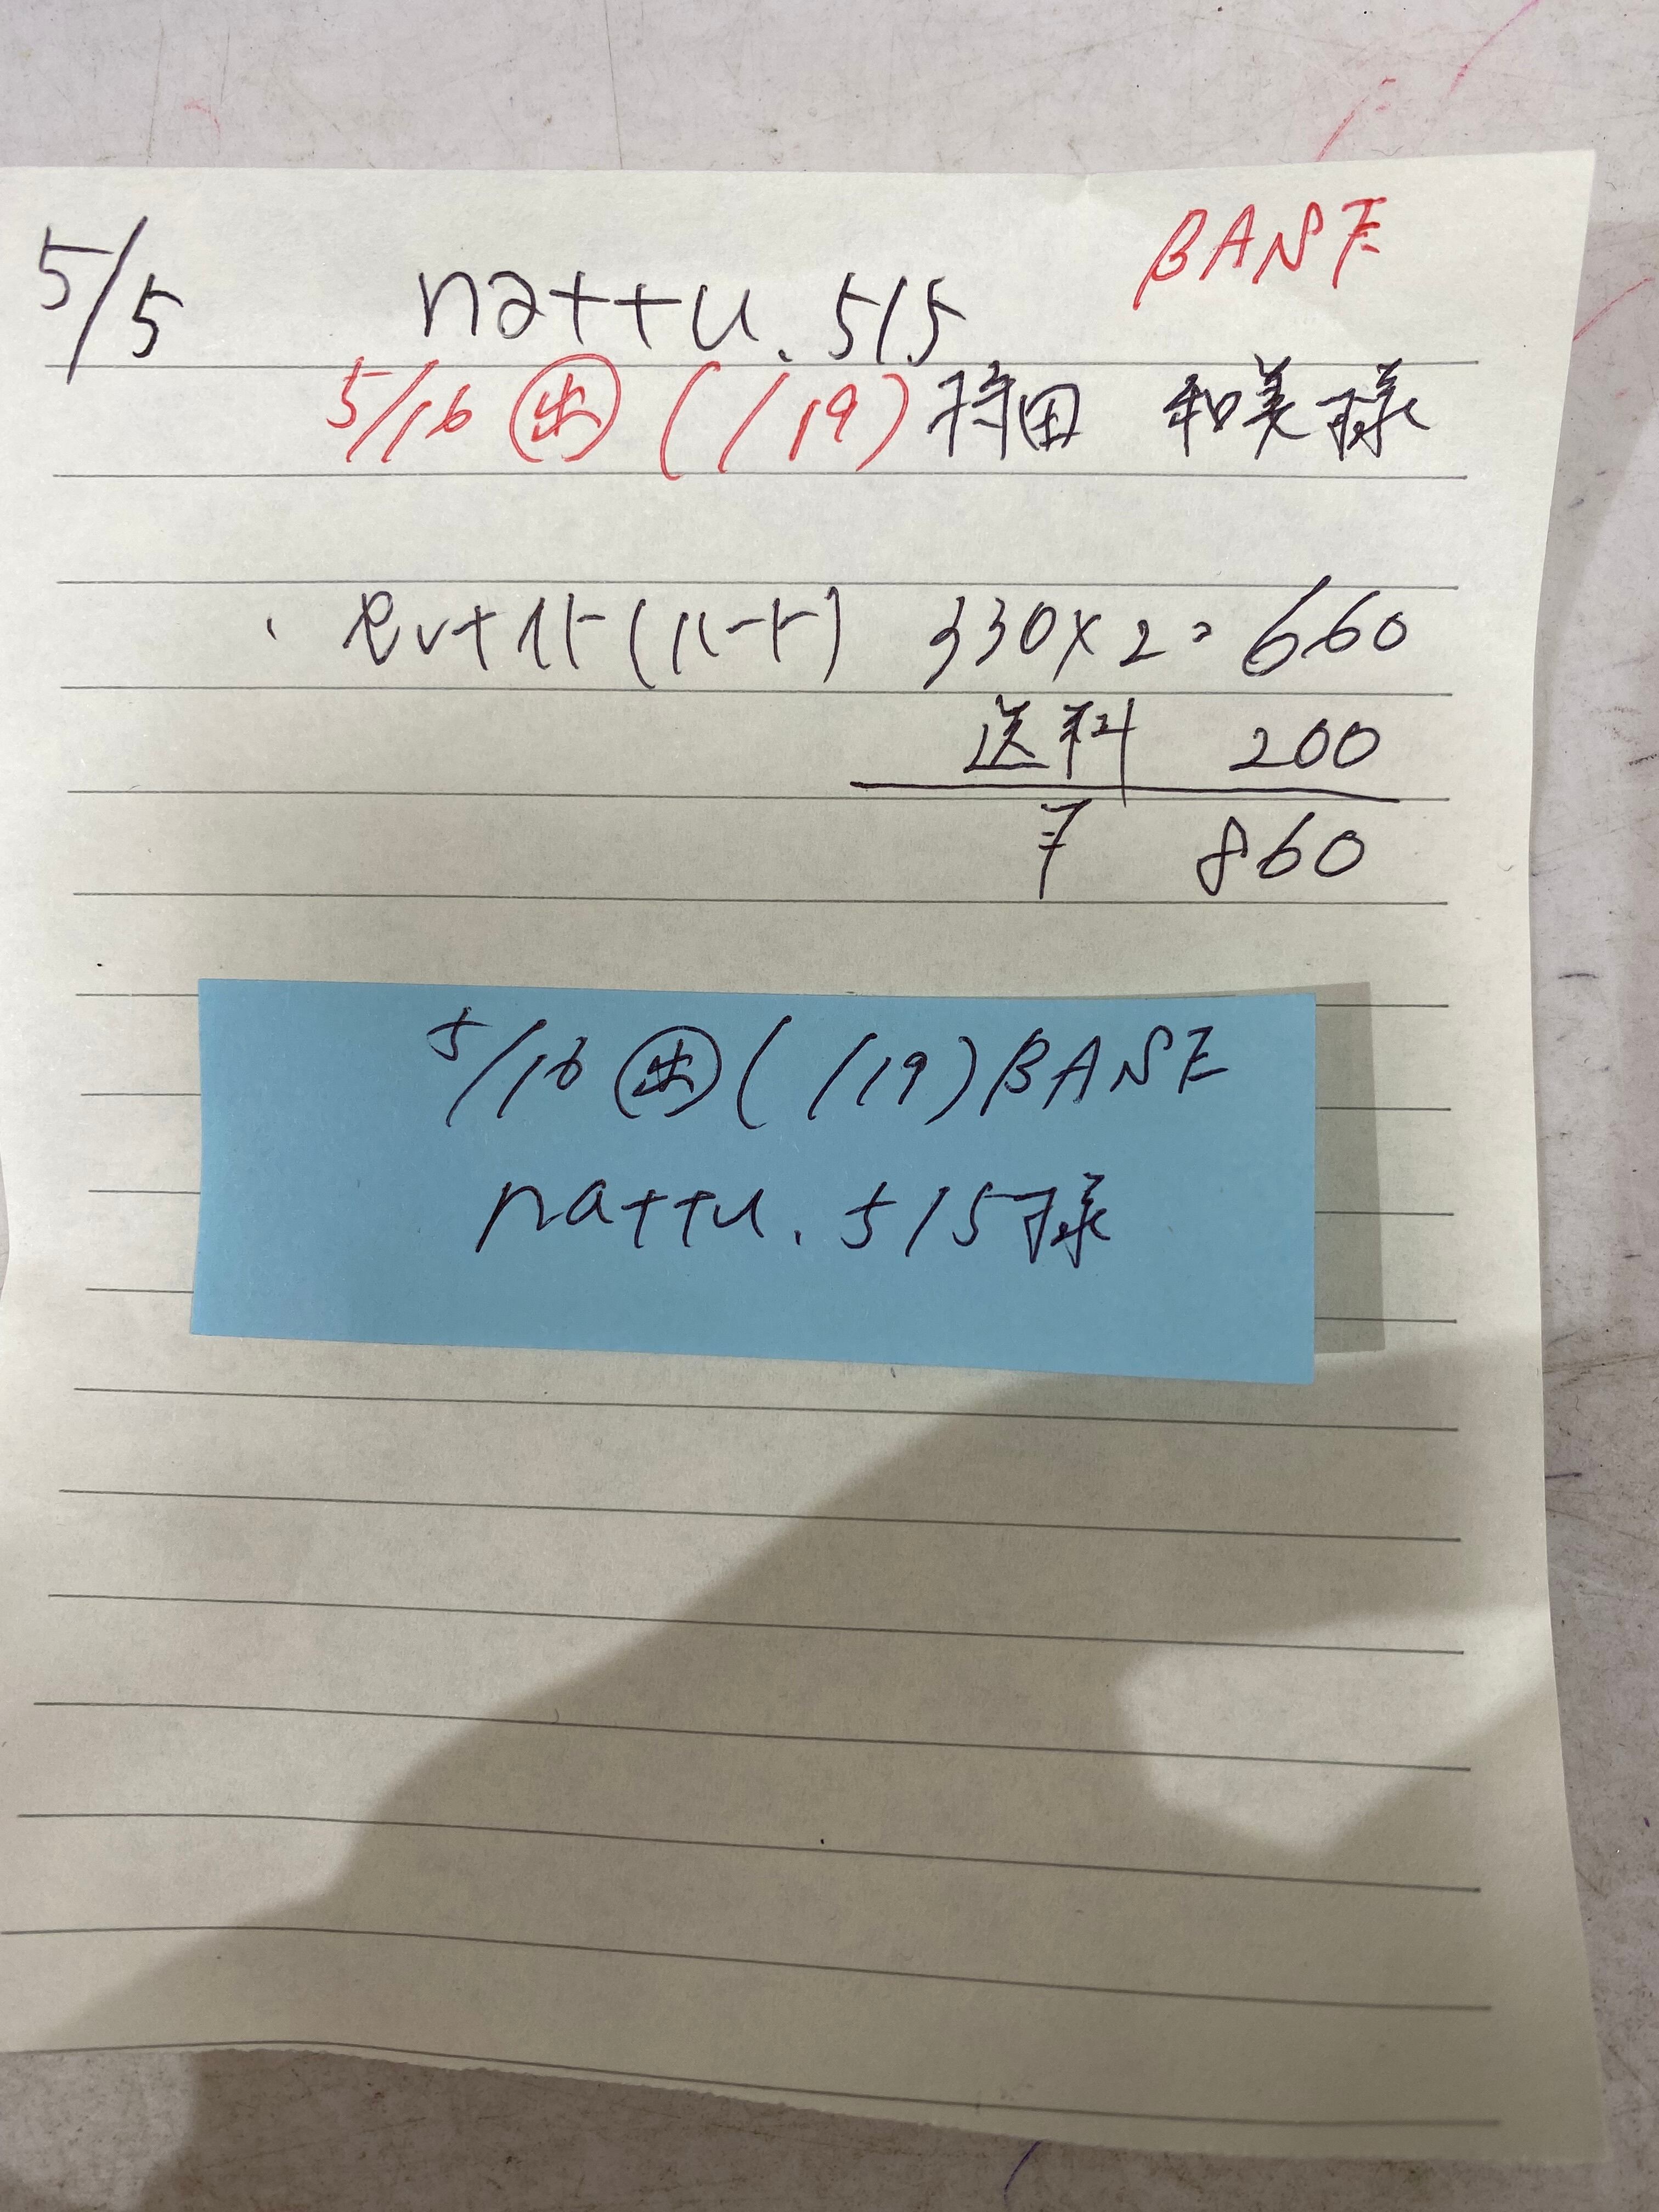 BASE
5/5 nattu.515
5/16 ㊌ (/19) 持田 和美様
(ハート) 330×2=660
送料 200
〒 860
5/16 ㊌ (/19) BASE
nattu.515様